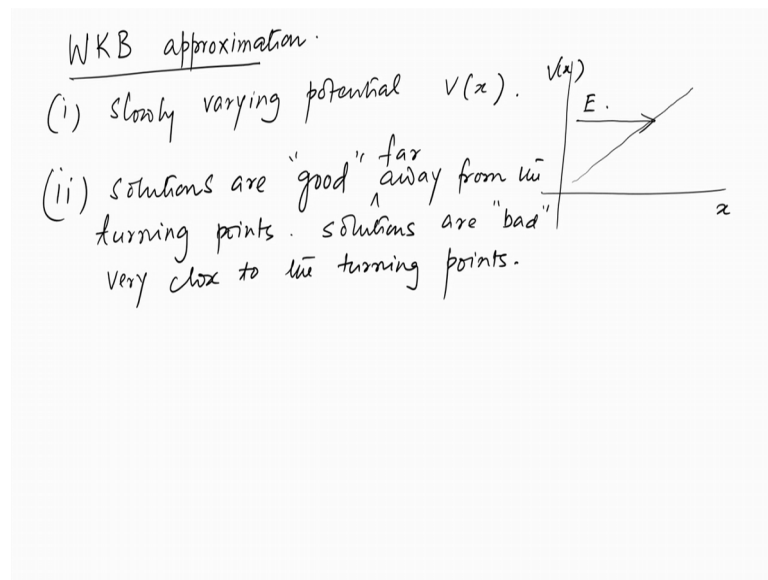 WKB approximation.
(i) slowly varying potential V(x).
V(x)
E.
(ii) solutions are "good" far away from the
x
turning points. solutions are "bad"
very close to the turning points.